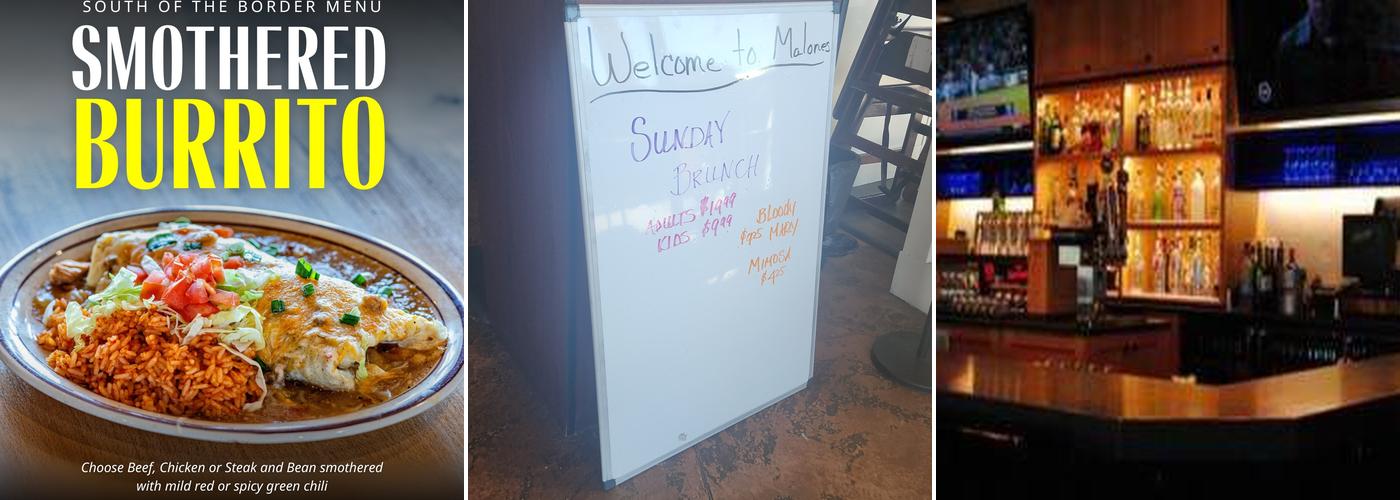 SOUTH OF THE BORDER MENU
SMOTHERED
BURRITO
Choose Beef, Chicken or Steak and Bean smothered
with mild red or spicy green chili
Welcome to Malones
SUNDAY
BRUNCH
ADULTS $19.99
KIDS $9.99
BLOODY
MARY
MIMOSA
$4.25